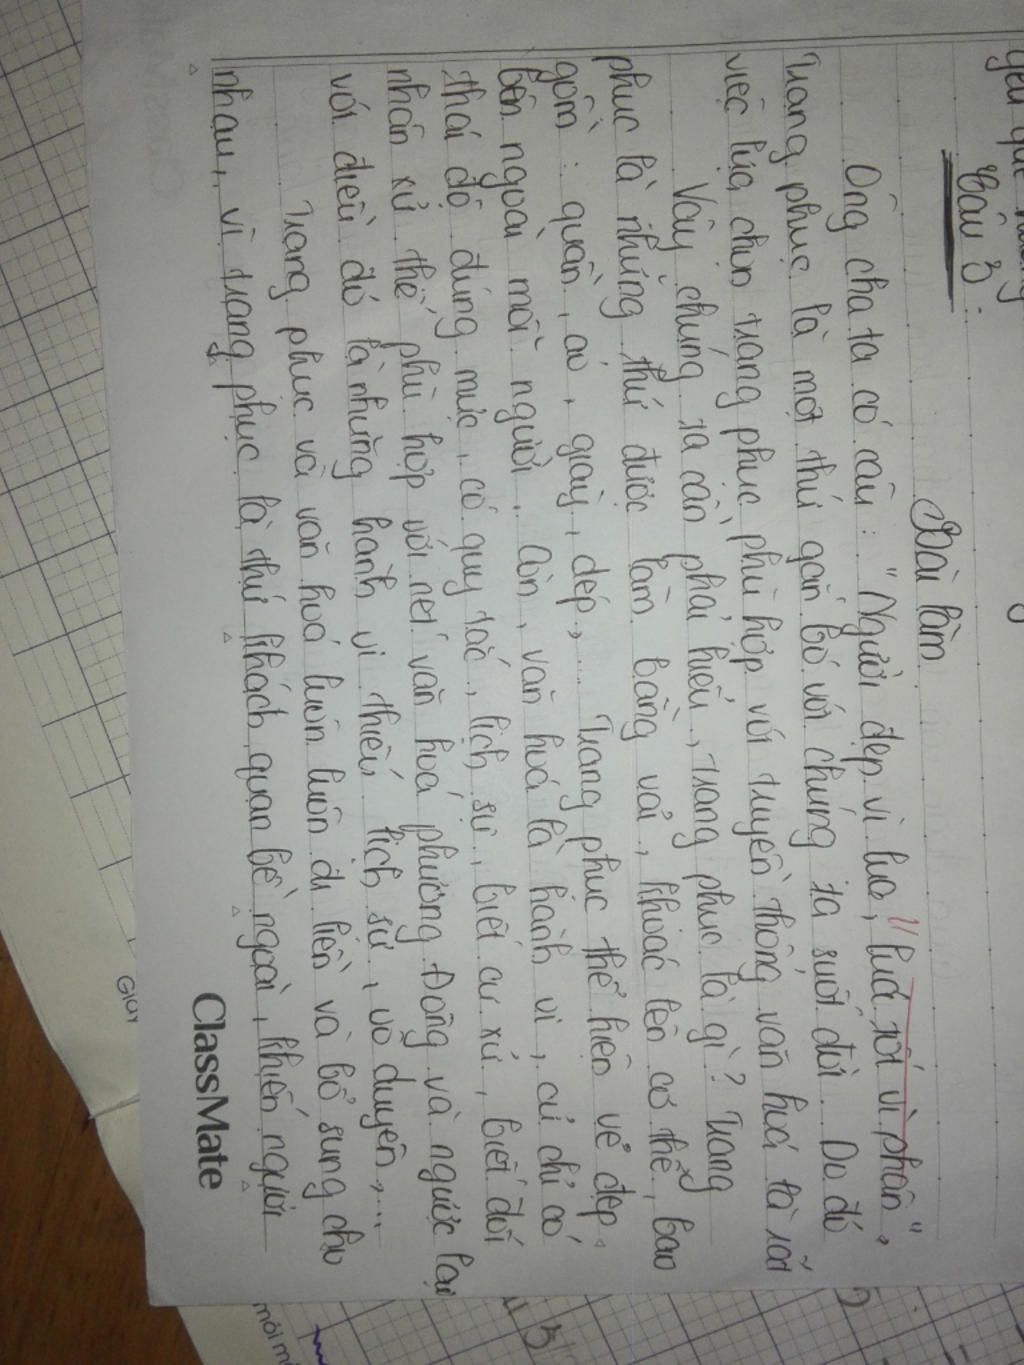 Câu 3.
Bài làm
Ông cha ta có câu : "Người đẹp vì lụa, lúa tốt vì phân",
Trang phục là một thứ gắn bó với chúng ta suốt đời. Do đó
việc lựa chọn trang phục phù hợp với truyền thống văn hoá là rất
Vậy chúng ta cần phải hiểu, trang phục là gì? Trang
phục là những thứ được làm bằng vải, khoác lên cơ thể, bao
gồm : quần, áo, giày, dép,... Trang phục thể hiện vẻ đẹp
bên ngoài mỗi người. Còn, văn hoá là hành vi, cử chỉ có
thái độ đúng mực, có quy tắc, lịch sự, biết cư xử, biết đối
nhân xử thế phù hợp với nét văn hoá phương Đông và ngược lại
với điều đó là những hành vi thiếu lịch sự, vô duyên,...
Trang phục và văn hoá luôn luôn đi liền và bổ sung cho
nhau, vì trang phục là thứ khách quan bề ngoài, khiến người
ClassMate
GIẤY